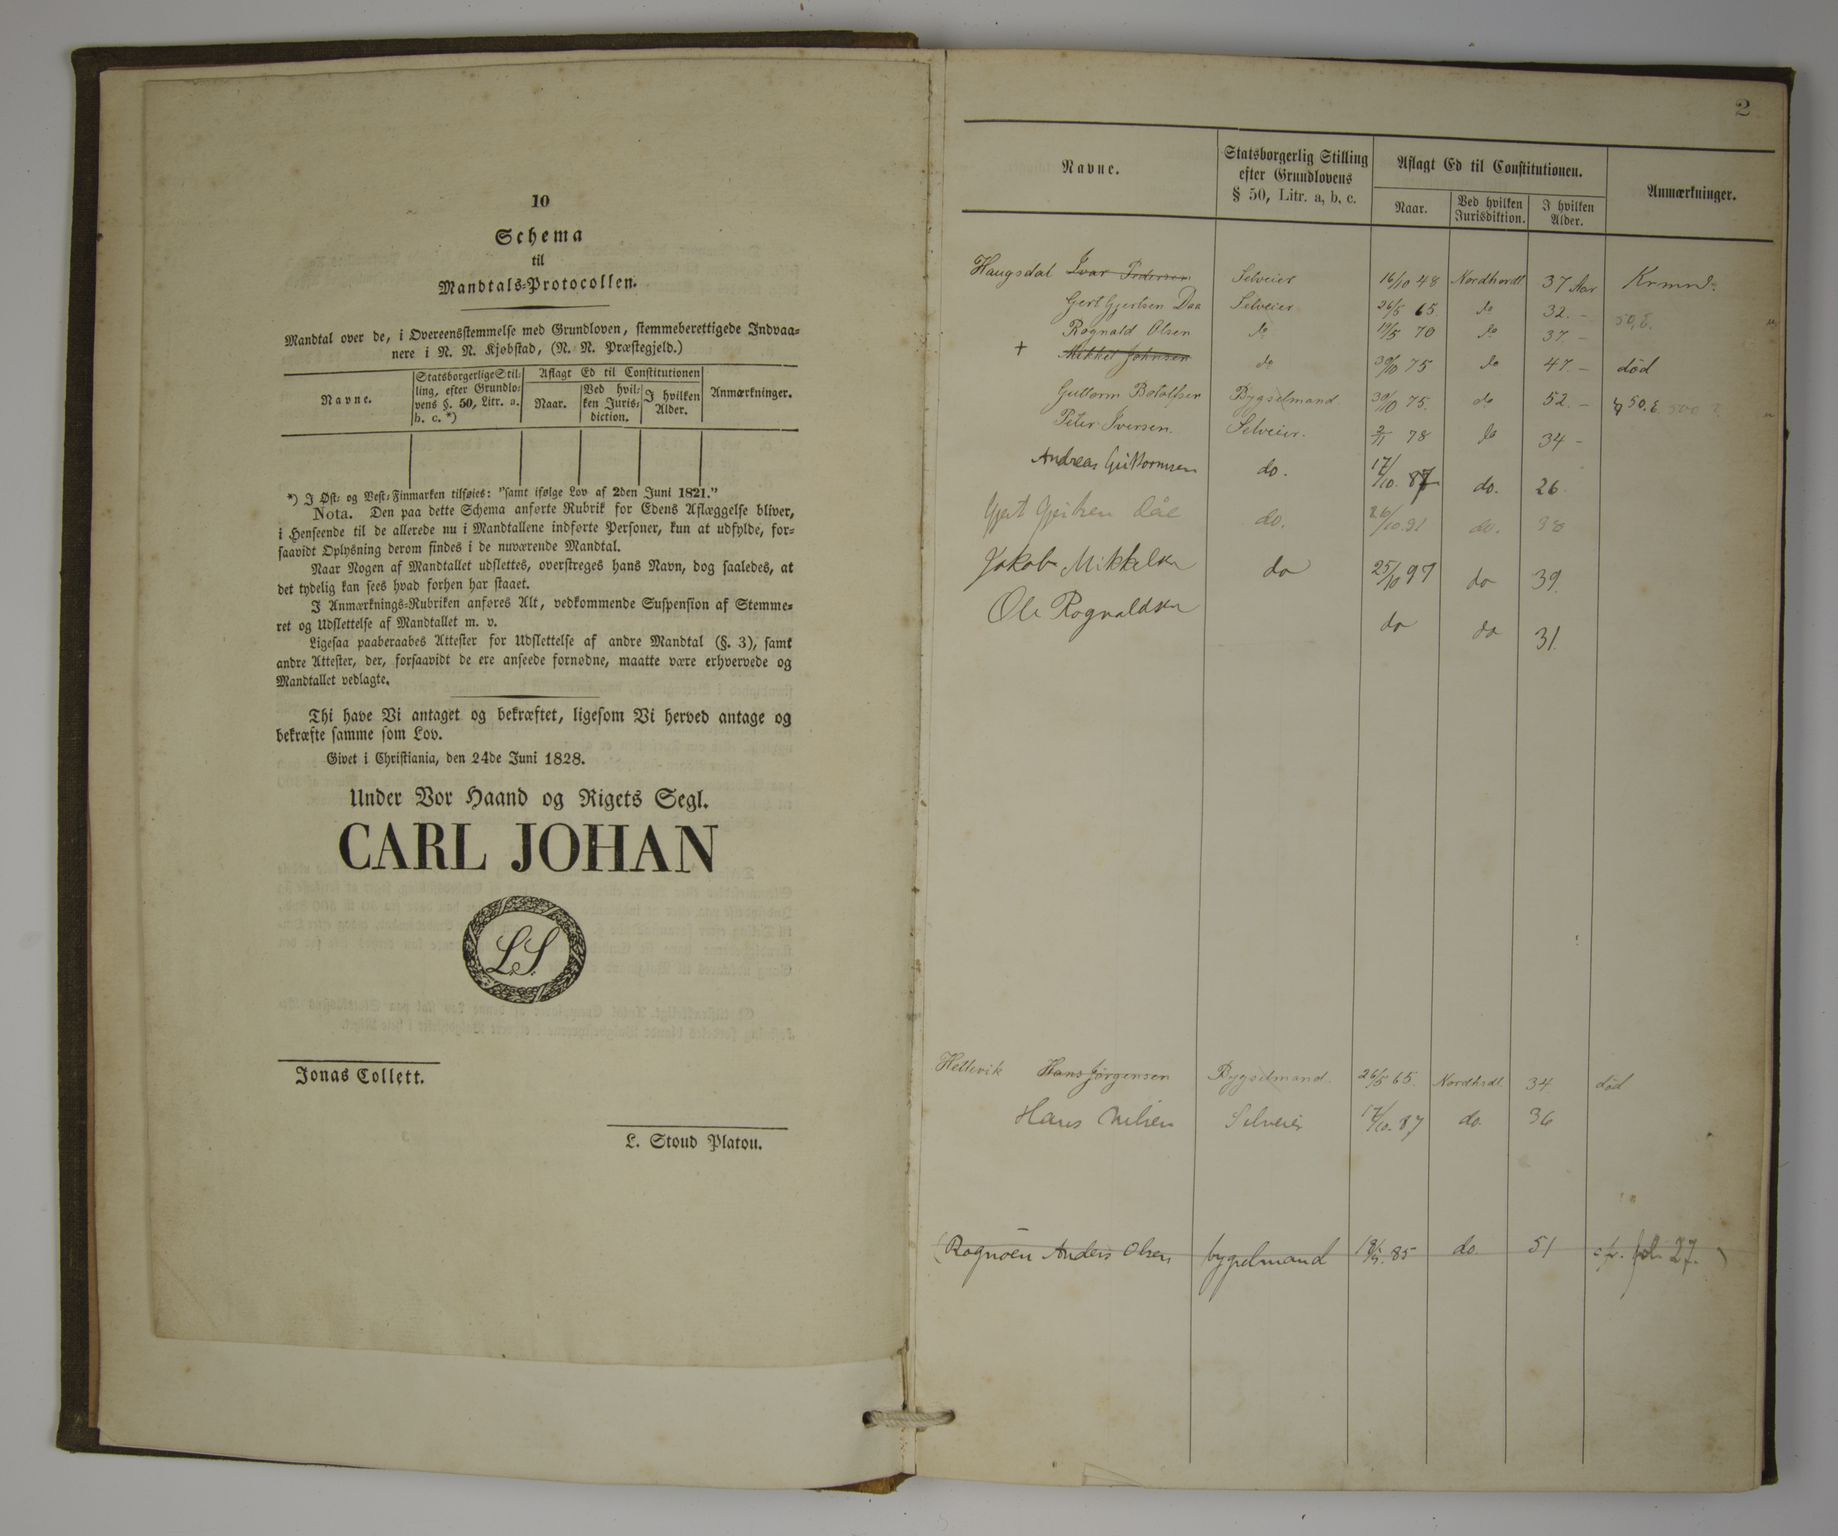 10
Schema
til
Mandtals=Protocollen.
Mandtal over de, i Overeensstemmelse med Grundloven, stemmeberettigede Indvaa=
nere i N. N. Kjøbstad, (N. N. Præstegjeld.)
Navne. | Statsborgerlige Stil=ling, efter Grundlo=vens §. 50, Litr. a. b. c. *) | Aflagt Ed til Constitutionen | Anmærkninger.
Naar. | Ved hvil=ken Juris=diction. | I hvilken Alder.
*) I Øst= og Vest=Finmarken tilføies: "samt ifølge Lov af 2den Juni 1821."
Nota. Den paa dette Schema anførte Rubrik for Edens Aflæggelse bliver,
i Henseende til de allerede nu i Mandtallene indførte Personer, kun at udfylde, for=
saavidt Oplysning derom findes i de nuværende Mandtal.
Naar Nogen af Mandtallet udslettes, overstreges hans Navn, dog saaledes, at
det tydelig kan sees hvad forhen har staaet.
I Anmærknings=Rubriken anføres Alt, vedkommende Suspension af Stemme=
ret og Udslettelse af Mandtallet m. v.
Ligesaa paaberaabes Attester for Udslettelse af andre Mandtal (§. 3), samt
andre Attester, der, forsaavidt de ere anseede fornødne, maatte være erhvervede og
Mandtallet vedlagte.
Thi have Vi antaget og bekræftet, ligesom Vi herved antage og
bekræfte samme som Lov.
Givet i Christiania, den 24de Juni 1828.
Under Vor Haand og Rigets Segl.
CARL JOHAN
L.S.
Jonas Collett.
L. Stoud Platou.
2
Navne. | Statsborgerlig Stilling efter Grundlovens § 50, Litr. a, b, c. | Aflagt Ed til Constitutionen. | Anmærkninger.
Naar. | Ved hvilken Jurisdiktion. | I hvilken Alder.
Haugsdal Ivar Pedersen Selveier 16/10 48 Nordhordl 37 Aar
Gert Gjertsen Daa Selveier 26/5 65 do 32. –
Rognald Olsen do 17/5 70 do 37. –
+ Mikkel Johnsen do 30/10 75 do 47. – död
Guttorm Botolfsen Bygselmand 30/10 75. do 52. –
Peter Iversen. Selveier. 2/11 78 do 34 –
Andreas Guttormsen do. 17/10. 87 do. 26.
Gjert Gjertsen Dåe do. 26/10. 91 do. 38
Jakob Mikkelsen do 25/10 97 do 39.
Ole Rognaldsen do do 31.
Hellevik Hans Jörgensen Bygselmand. 26/5 65. Nordhrdl. 34 död
Hans Nilsen Selveier 17/10. 87 do. 36
(Rognøen Anders Olsen bygselmand 85 do 51 cfr. fol. 27.)